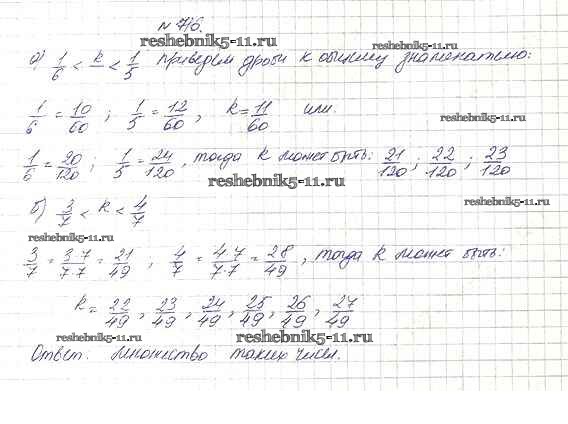 № 716.
reshebnik5-11.ru
а) 1/6 < k < 1/5 приведём дроби к общему знаменателю:
reshebnik5-11.ru
reshebnik5-11.ru
1/6 = 10/60 ; 1/5 = 12/60 , k = 11/60 или.
reshebnik5-11.ru
1/6 = 20/120 ; 1/5 = 24/120 , тогда k может быть: 21/120 ; 22/120 ; 23/120
reshebnik5-11.ru
б) 3/7 < k < 4/7
reshebnik5-11.ru
reshebnik5-11.ru
3/7 = 3·7/7·7 = 21/49 ; 4/7 = 4·7/7·7 = 28/49 , тогда k может быть:
k = 22/49 , 23/49 , 24/49 , 25/49 , 26/49 , 27/49
reshebnik5-11.ru
reshebnik5-11.ru
Ответ. Множество таких чисел.